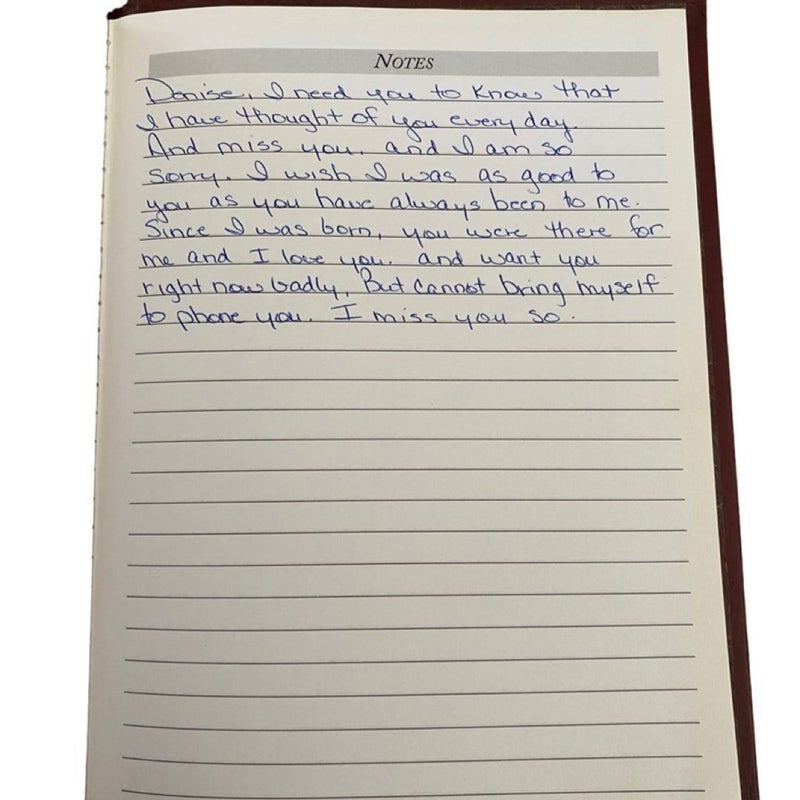 NOTES
Denise, I need you to know that
I have thought of you every day.
And miss you. and I am so
sorry. I wish I was as good to
you as you have always been to me.
Since I was born, you were there for
me and I love you. and want you
right now badly, But cannot bring myself
to phone you. I miss you so.